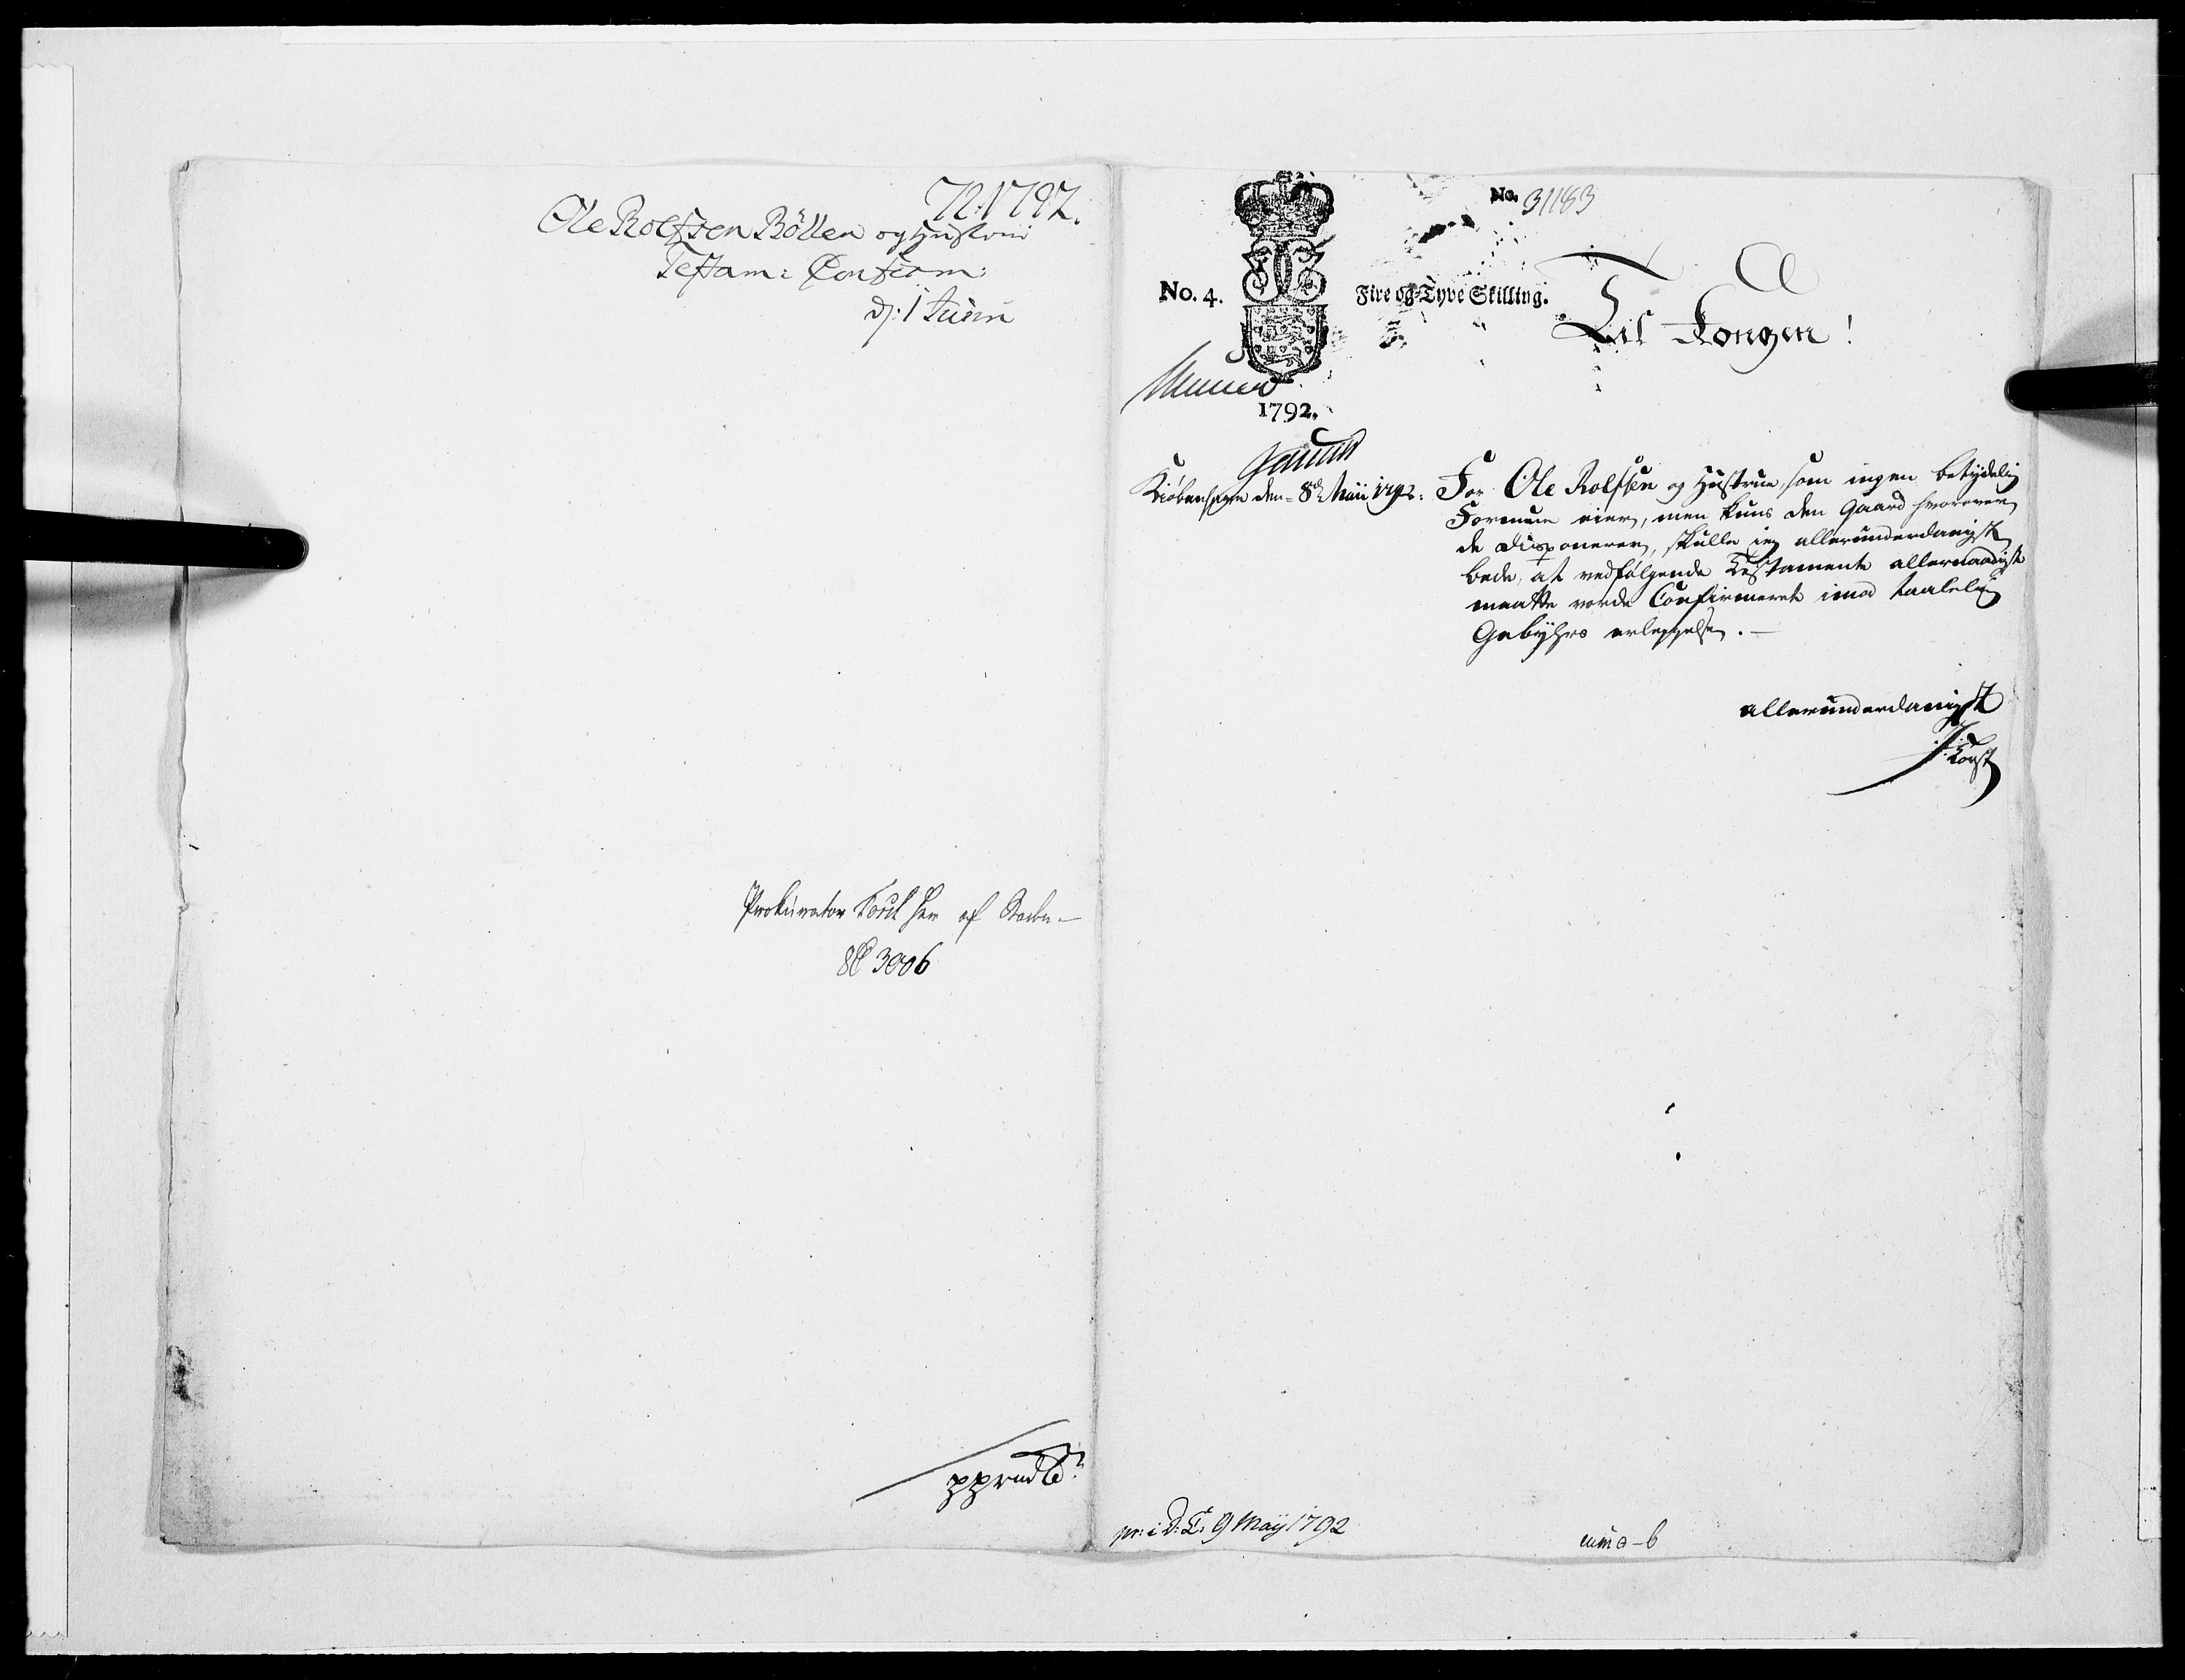 72: 1792.
Ole Rolfsen Böllen og Hustrue
Testam: Confirm:
d: 1 Juni
Prokurator Torst her af Staden
3006
No. 31183
No. 4.
Fire og Tyve Skilling.
Til Kongen!
1792.
Kiöbenhavn den 8de Maii 1792:
For Ole Rolfsen og Hustrue, som ingen betydelig
Formue eier, men kuns den Gaard hvorover
de disponerer, skulle jeg allerunderdanigst
bede, at vedfølgende Testamente allernaadigst
maatte vorde Confirmeret imod taalelig
Gebyhrs erleggelse. –
allerunderdanigst
pr: i D: C: 9 Maÿ 1792
cum a–b